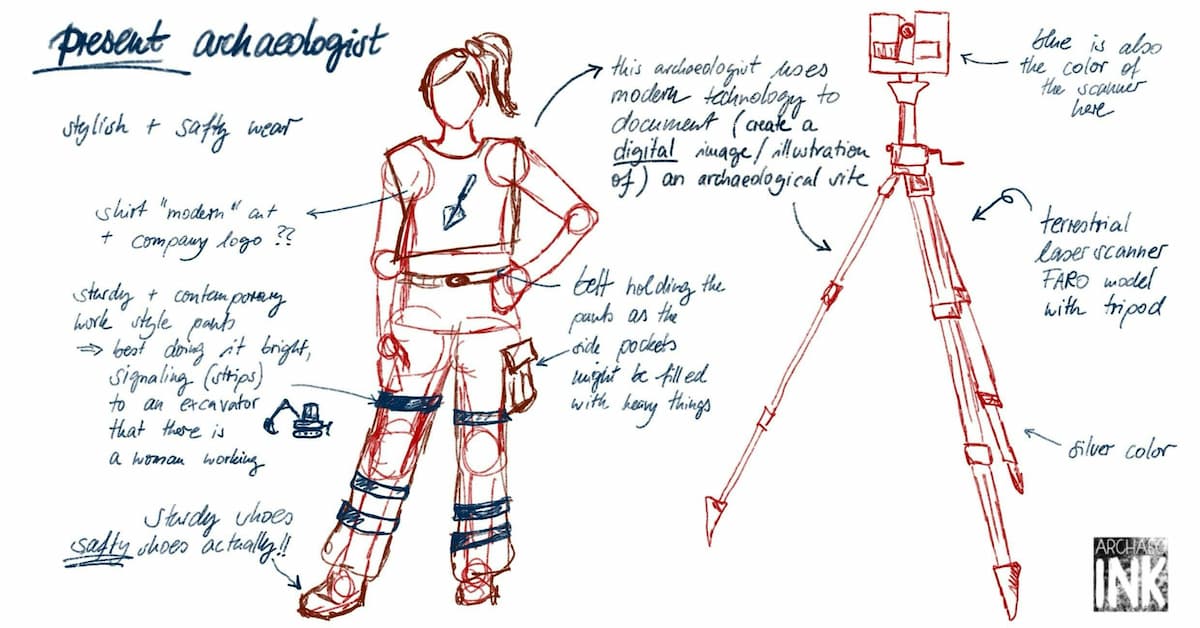 present archaeologist
stylish + safty wear
shirt "modern" cut
+ company logo ??
sturdy + contemporary
work style pants
⇒ best doing it bright,
signaling (strips)
to an excavator
that there is
a woman working
sturdy shoes
safty shoes actually!!
this archaeologist uses
modern technology to
document (create a
digital image/illustration
of) an archaeological site
belt holding the
pants as the
side pockets
might be filled
with heavy things
blue is also
the color of
the scanner
here
terrestrial
laserscanner
FARO model
with tripod
silver color
ARCHAEO
INK